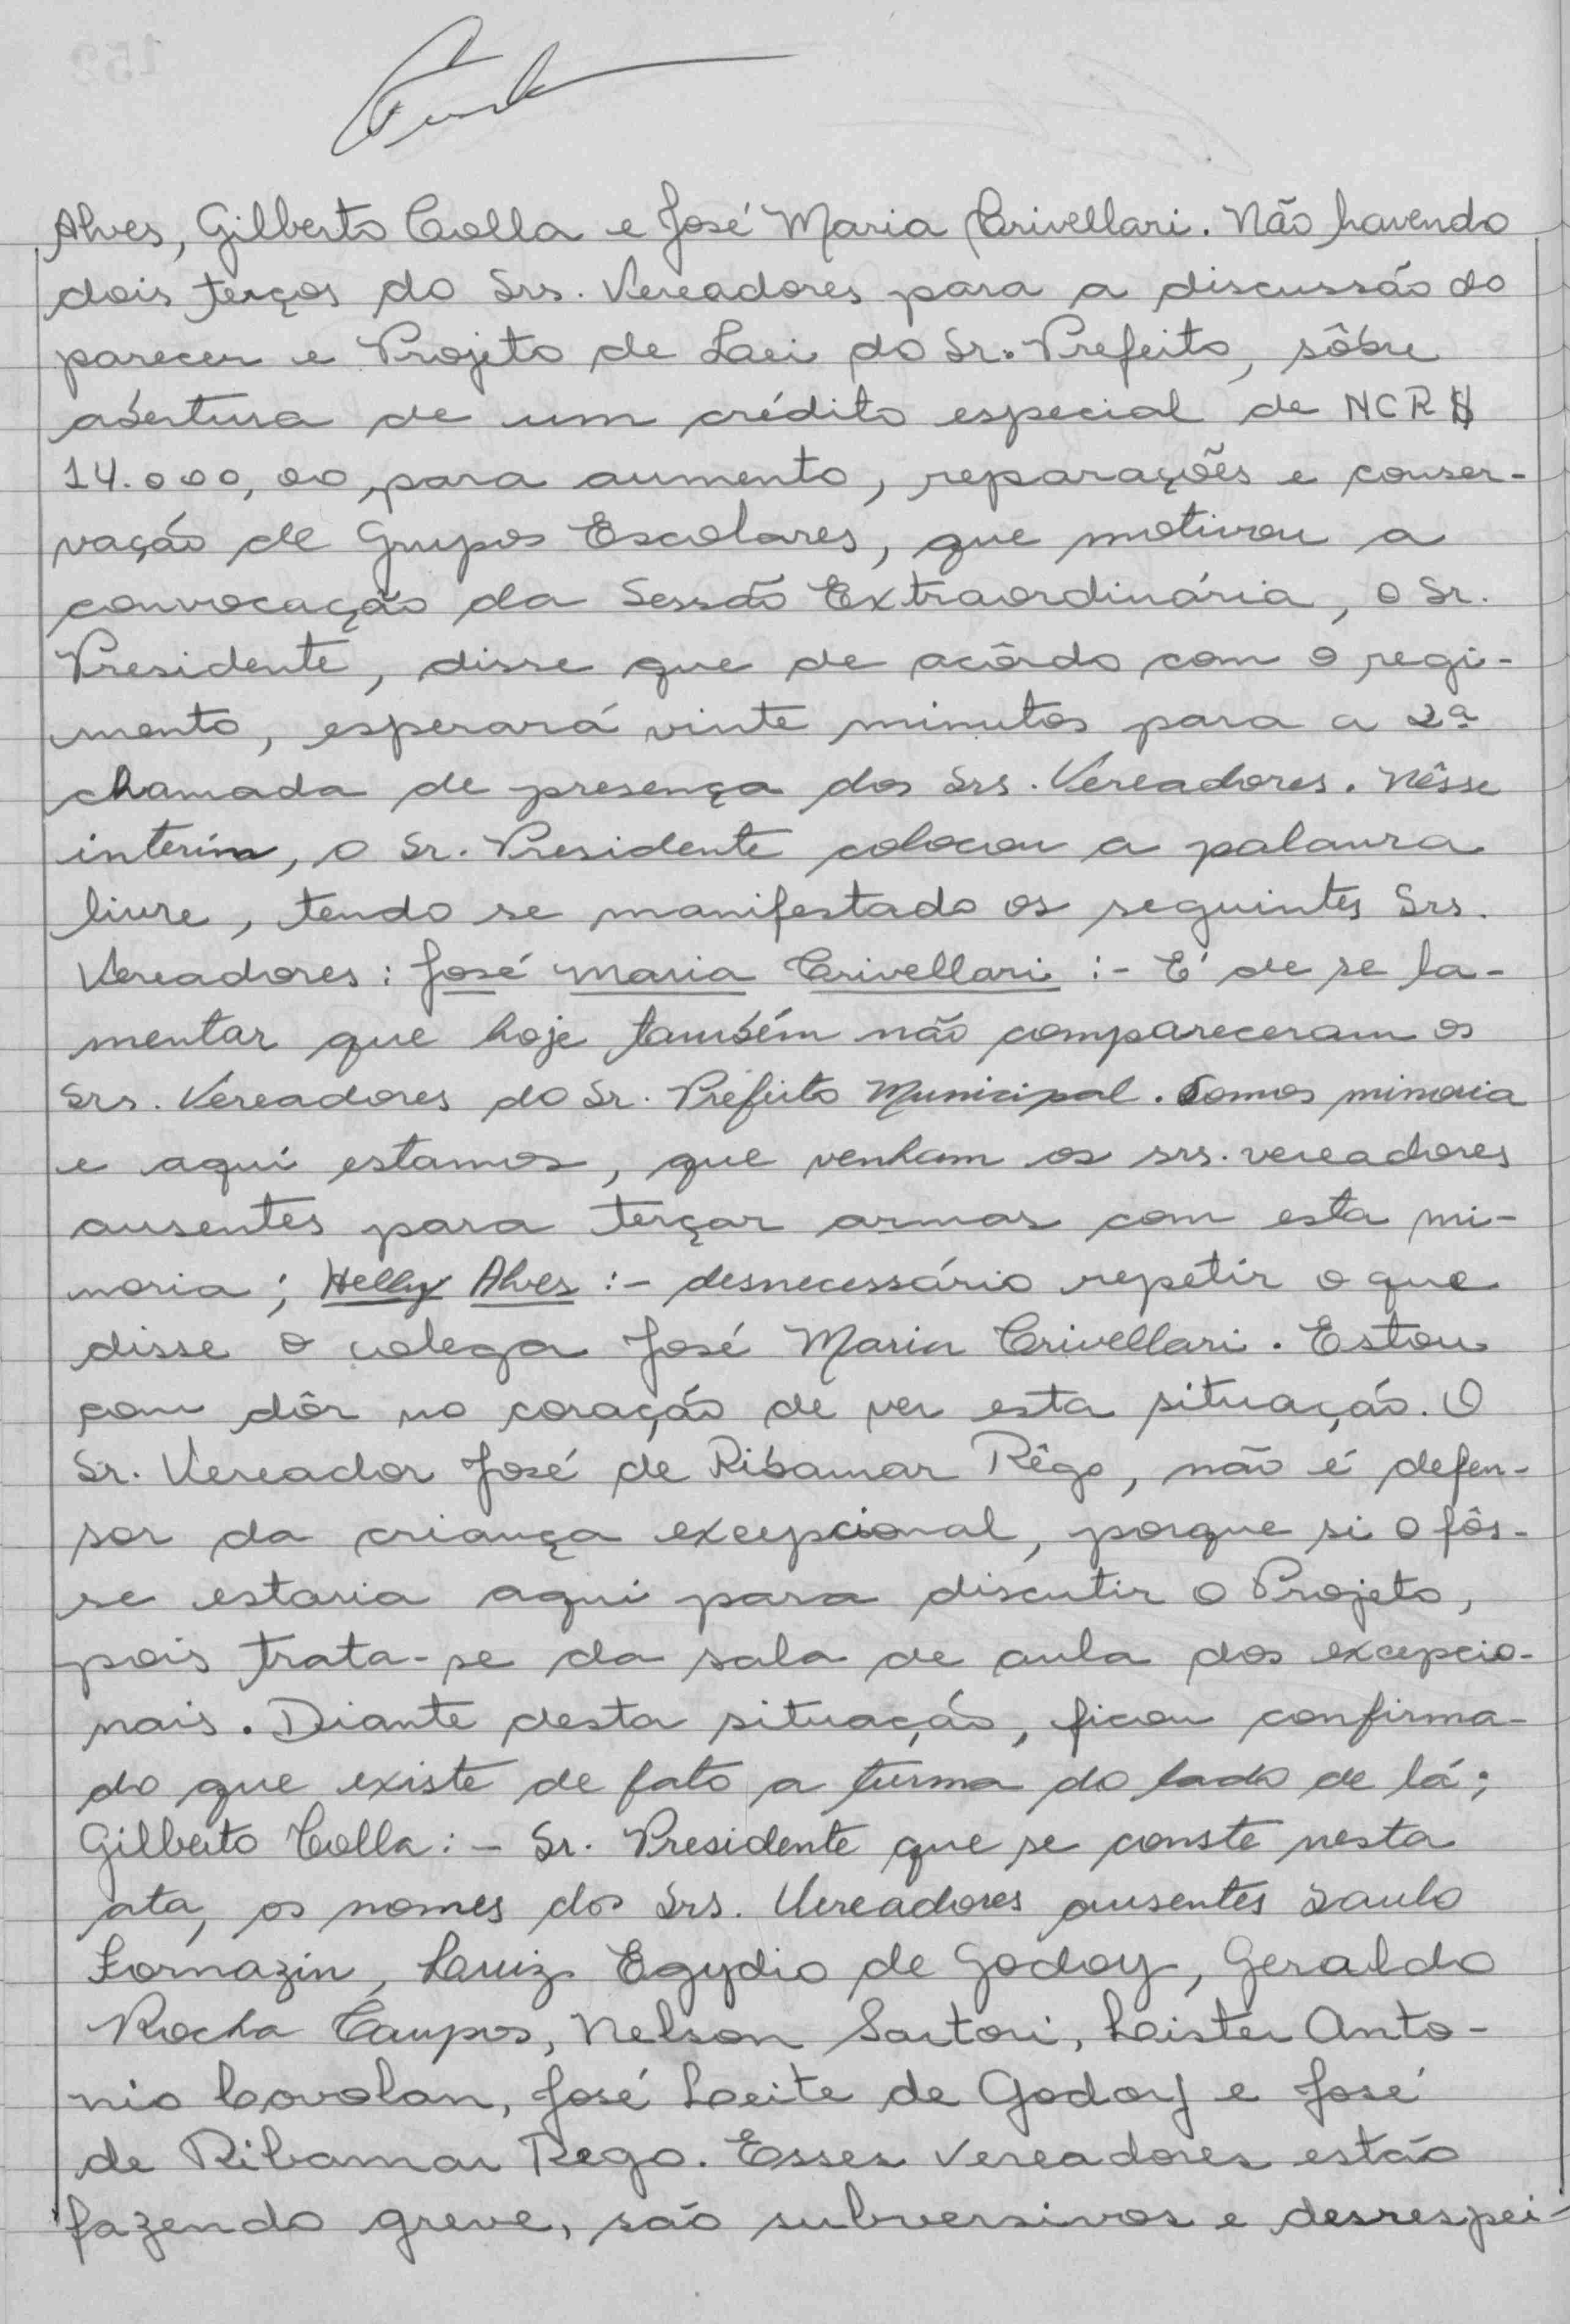 Alves, Gilberto Colla e José Maria Crivellari. Não havendo
dois terços do Srs. Vereadores para a discussão do
parecer e Projeto de Lei do Sr. Prefeito, sôbre
abertura de um crédito especial de NCR$
14.000,00, para aumento, reparações e conser-
vação de Grupos Escolares, que motivou a
convocação da Sessão Extraordinária, o Sr.
Presidente, disse que de acôrdo com o regi-
mento, esperará vinte minutos para a 2ª
chamada de presença dos Srs. Vereadores. Nêsse
interim, o Sr. Presidente colocou a palavra
livre, tendo se manifestado os seguintes Srs.
Vereadores: José Maria Crivellari :- É de se la-
mentar que hoje também não compareceram os
Srs. Vereadores do Sr. Prefeito Municipal. Somos minoria
e aqui estamos, que venham os srs. vereadores
ausentes para terçar armas com esta mi-
noria; Helly Alves :- desnecessário repetir o que
disse o colega José Maria Crivellari. Estou
com dôr no coração de ver esta situação. O
Sr. Vereador José de Ribamar Rêgo, não é defen-
sor da criança excepcional, porque si o fôs-
se estaria aqui para discutir o Projeto,
pois trata-se da sala de aula dos excepcio-
nais. Diante desta situação, ficou confirma-
do que existe de fato a turma do lado de lá;
Gilberto Colla :- Sr. Presidente que se conste nesta
ata, os nomes dos Srs. Vereadores ausentes Saulo
Fornazin, Luiz Egydio de Godoy, Geraldo
Rocha Campos, Nelson Sartori, Leister Anto-
nio Covolan, José Leite de Godoy e José
de Ribamar Rego. Esses Vereadores estão
fazendo greve, são subversivos e desrespei-